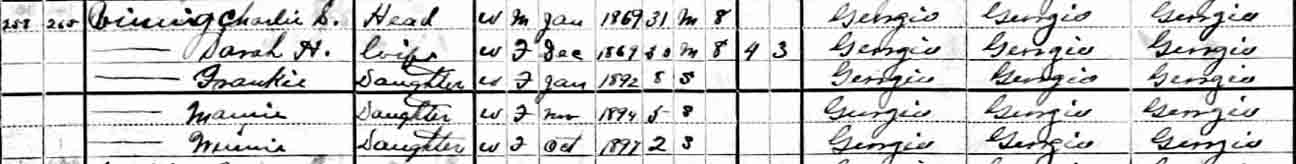 258 265 Vining Charlie S. Head W M Jan 1869 31 M 8 Georgia Georgia Georgia
—— Sarah H. Wife W F Dec 1869 30 M 8 4 3 Georgia Georgia Georgia
—— Frankie Daughter W F Jan 1892 8 S Georgia Georgia Georgia
—— Mamie Daughter W F Nov 1894 5 S Georgia Georgia Georgia
—— Daughter W F Oct 1897 2 S Georgia Georgia Georgia